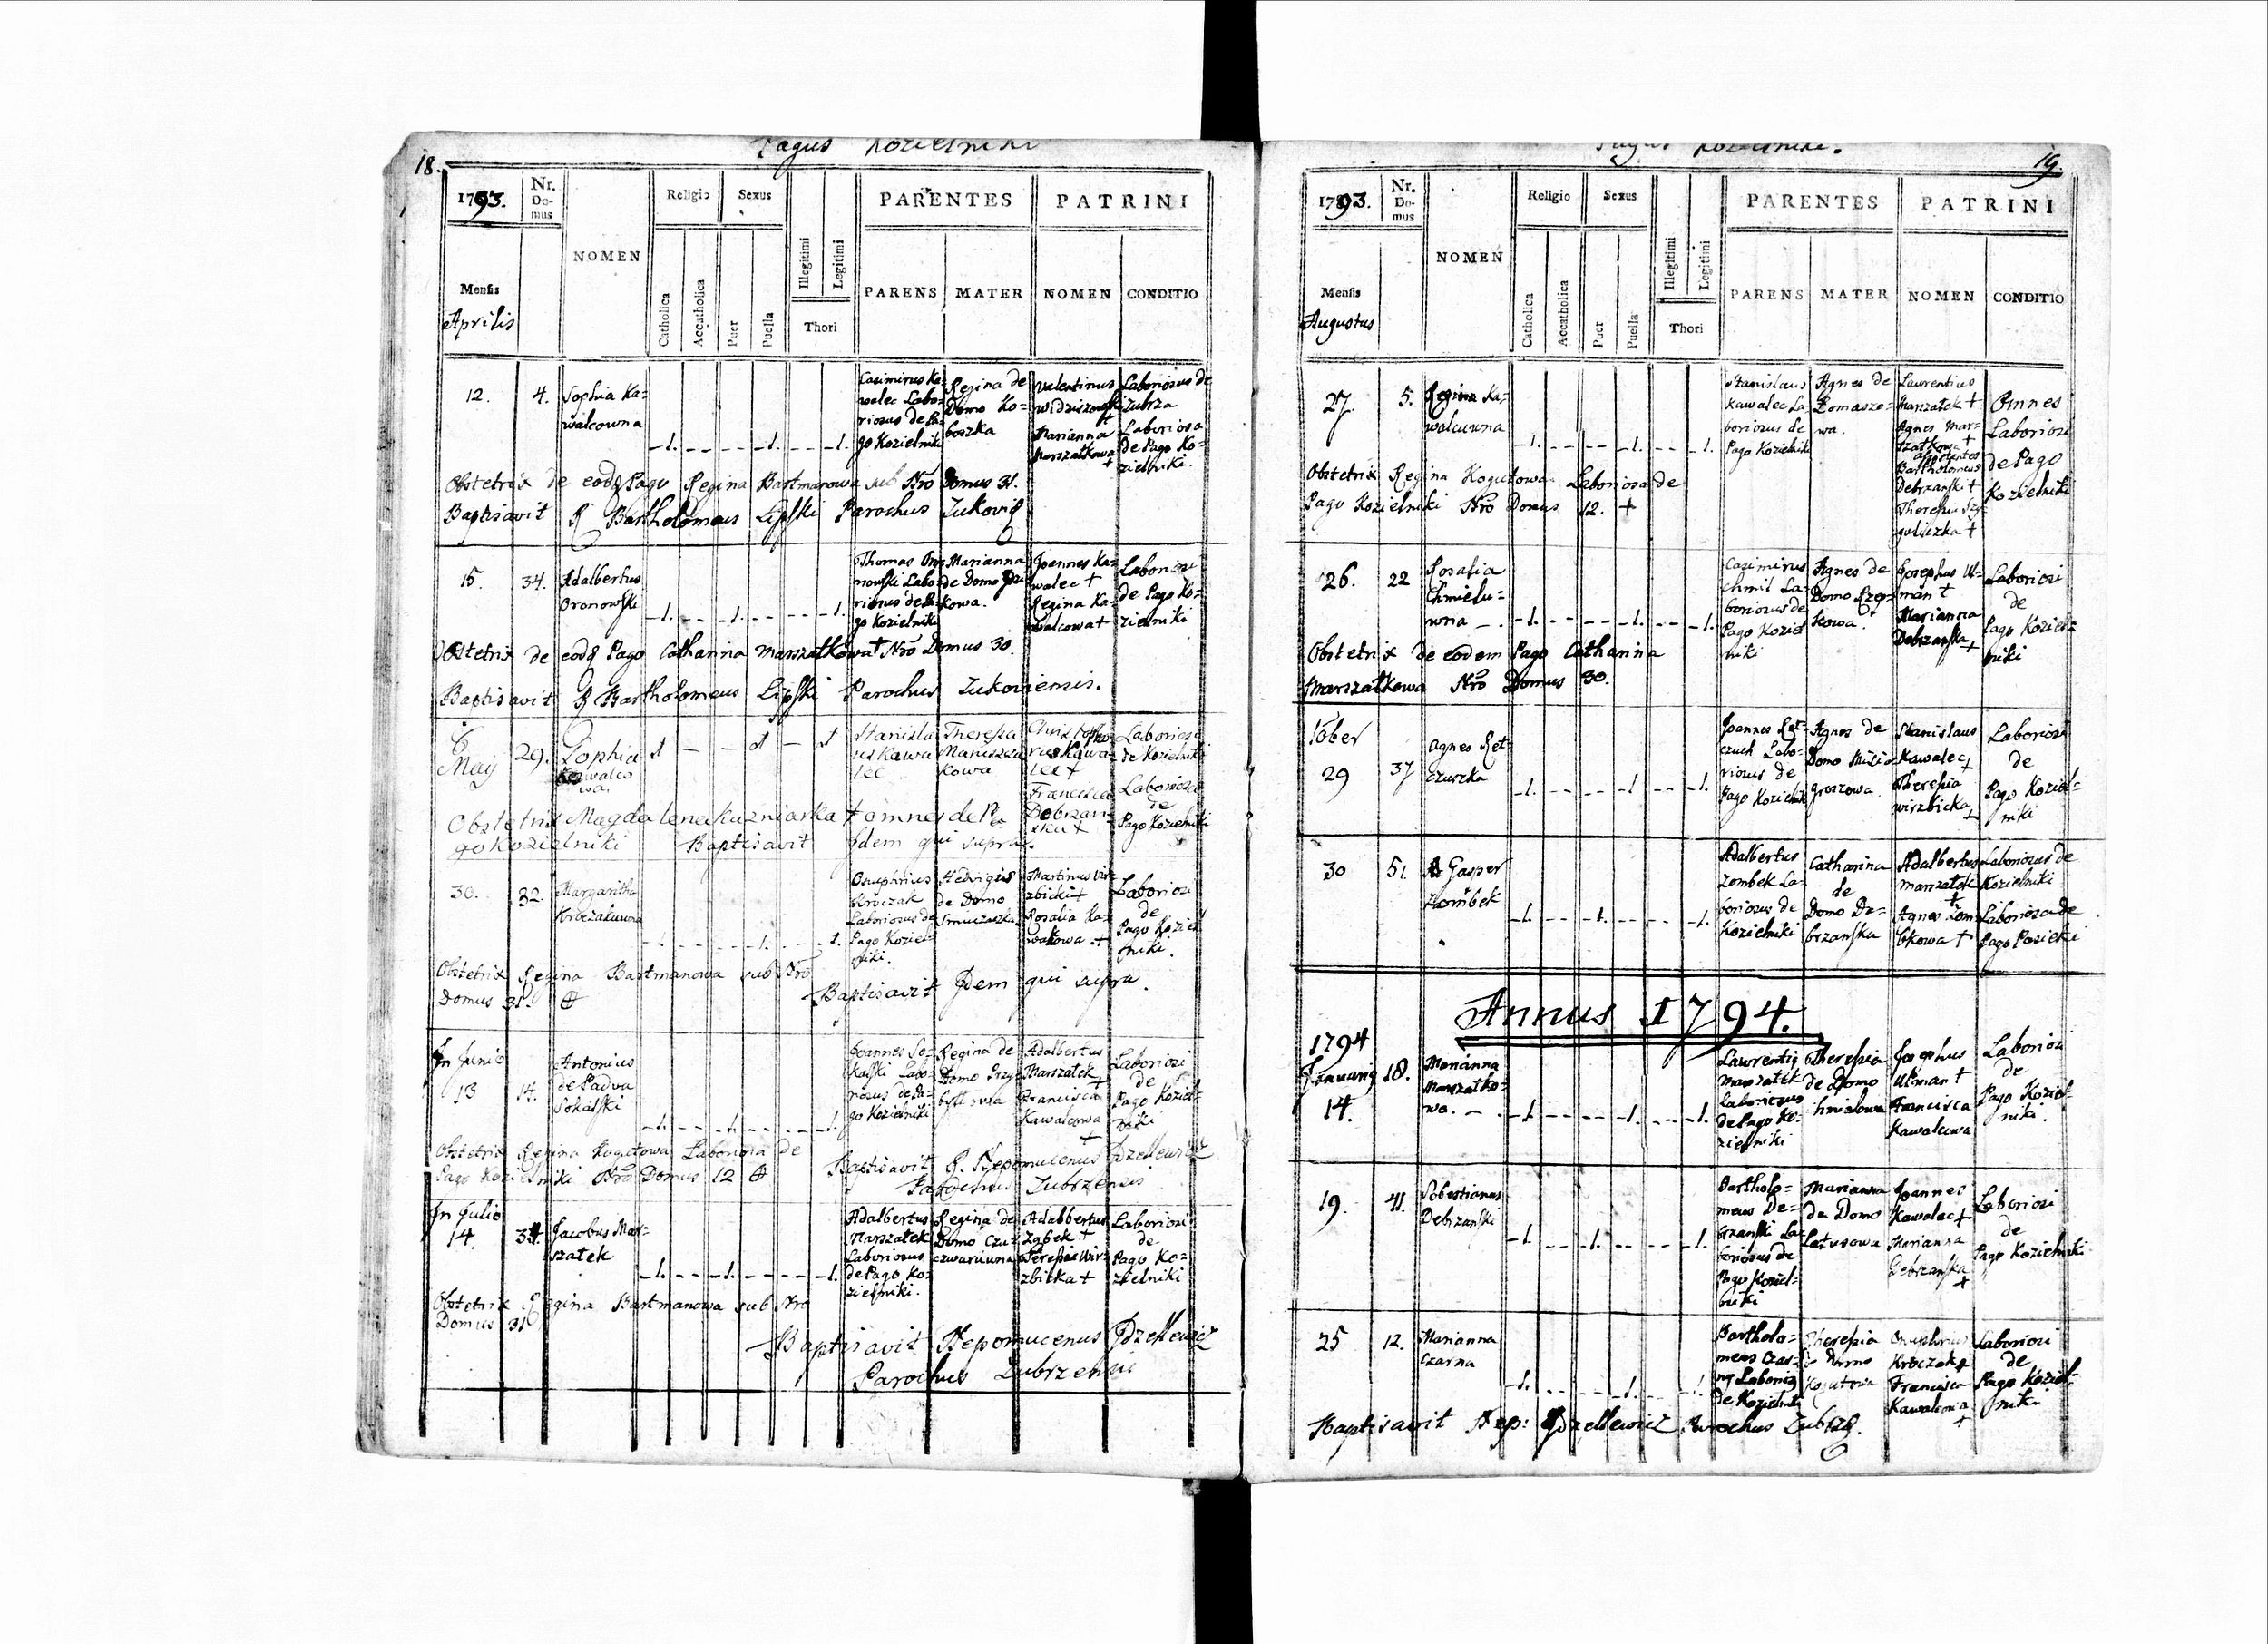 18.
Pagus Kozielniki
1793.
Nr. Domus
NOMEN
Religio
Sexus
PARENTES
PATRINI
Mensis
Aprilis
Catholica
Accatholica
Puer
Puella
Illegitimi
Legitimi
Thori
PARENS
MATER
NOMEN
CONDITIO
12.
4.
Sophia Ka=
walcowna
1. 1. 1.
Casimirus Ka=
walec Labo=
riosus de Pa=
go Kozielniki
Regina de
Domo Ko=
boszka
Valentinus
Marianna
Marszalkowa
+
Laboriosus de
Zubrza
Laboriosa
de Pago Ko=
zielniki.
Obstetrix de eodem Pago Regina Bartmanowa sub Nro Domus 31.
Baptisavit R Bartholomeus Lipski Parochus
15.
34.
Adalbertus
Oronowski
1. 1. 1.
Thomas Oro=
nowski Labo=
riosus de Pa=
go Kozielniki
Marianna
de Domo
kowa.
Joannes Ka=
walec +
Regina Ka=
walcowa +
Laboriosi
de Pago Ko=
zielniki
Obstetrix de eodem Pago Catharina Marszałkowa + Nro Domus 30.
Baptisavit R Bartholomeus Lipski Parochus Zukoviensis.
6
May
29.
Sophia
Kawalco
wa.
1 1 1
Stanisla
us Kawa
lec
Theresia
kowa
Christopho
rus Kawa=
lec +
Francisca
Dobrzan=
ska +
Laboriosi
de Kozielniki
Laboriosa
de
Pago Kozielniki
Obstetrix Magdalena Kuzniarka + omnes de Pa
go Kozielniki Baptisavit Idem qui supra.
30.
32.
Margaritha
1. 1. 1.
Onuphrius
Kroczak
Laboriosus de
Pago Koziel=
niki.
Hedvigis
de Domo
Martinus Wir=
zbicki +
Rosalia Ka=
walcowa +
Laboriosi
de
Pago Koziel
niki.
Obstetrix Regina Bartmanowa sub Nro
Domus 31.
Baptisavit Idem qui supra.
In Junio
13
14.
Antonius
de Padva
Sokalski
1. 1. 1.
Joannes So=
kalski Labo=
riosus de Pa=
go Kozielniki
Regina de
Domo
Adalbertus
Marszałek
+
Francisca
Kawalcowa
+
Laboriosi
de
Pago Koziel=
niki
Obstetrix Regina Kogutowa Laboriosa de
Pago Kozielniki Nro Domus 12
Baptisavit R. Nepomucenus
Parochus Zubrzensis
In Julio
14.
Jacobus Mar=
szałek
1. 1. 1.
Adalbertus
Marszałek
Laboriosus
de Pago Ko=
zielniki.
Regina de
Domo
Adalbertus
Ząbek +
Teresia Wir=
zbicka +
Laboriosi
de
Pago Ko=
zielniki
Obstetrix Regina Bartmanowa sub Nro
Domus 31
Baptisavit Nepomucenus
Parochus Zubrzensis
19.
Pagus Kozielniki.
1793.
Nr. Domus
NOMEN
Religio
Sexus
PARENTES
PATRINI
Mensis
Augustus
Catholica
Accatholica
Puer
Puella
Illegitimi
Legitimi
Thori
PARENS
MATER
NOMEN
CONDITIO
27.
5.
Regina Ka=
walcuwna
1. 1. 1.
Stanislaus
Kawalec La=
boriosus de
Pago Kozielniki
Agnes de
Tomaszo=
wa.
Laurentius
Marszałek +
Agnes Mar=
szałkowa +
Assistentes
Bartholomeus
Debrzanski +
Theresia
+
Omnes
Laboriosi
de Pago
Kozielniki
Obstetrix Regina Kogutowa Laboriosa de
Pago Kozielniki Nro Domus 12. +
26.
22
Rosalia
Chmielu=
wna
1. 1. 1.
Casimirus
Chmil La=
boriosus de
Pago Koziel
niki
Agnes de
Domo
kowa.
Josephus Ul=
man +
Marianna
Debrzanska
+
Laboriosi
de
Pago Koziel=
niki
Obstetrix de eodem Pago Catharina
Marszałkowa Nro Domus 30.
10ber
29
37
Agnes Ret=
czuszka
1. 1. 1.
Joannes Ret=
czuch Labo=
riosus de
Pago Kozielniki
Agnes de
Domo
groszowa.
Stanislaus
Kawalec +
Theresia
Wirzbicka
+
Laboriosi
de
Pago Koziel=
niki
30
51.
Gasper
Zombek
1. 1. 1.
Adalbertus
Zombek La=
boriosus de
Kozielniki
Catharina
de
Domo De=
brzanska
Adalbertus
Marszałek
+
Agnes Zom=
bkowa +
Laboriosus de
Kozielniki
Laboriosa de
Annus 1794.
1794
Januarij
14.
18.
Marianna
Marszałko=
wa.
1. 1. 1.
Laurentius
Marszałek
Laboriosus
de Pago Ko=
zielniki
Theresia
de Domo
Josephus
Ulman +
Francisca
Kawalcuwa
Laboriosi
de
Pago Koziel=
niki.
19.
41.
Sebestianus
Debrzanski
1. 1. 1.
Bartholo=
meus De=
brzanski La=
boriosus de
Pago Koziel=
niki
Marianna
de Domo
Latusowa
Joannes
Kawalec +
Marianna
Debrzanska
+
Laboriosi
de
Pago Kozielniki
25
12.
Marianna
Czarna
1. 1. 1.
Bartholo=
meus Czar=
ny Laboriosus
de Kozielniki
Theresia
de Domo
Kogutowa
Onuphrius
Kroczak +
Francisca
Kawalcowa
+
Laboriosi
de
Pago Koziel=
niki
Baptisavit Nep: Parochus